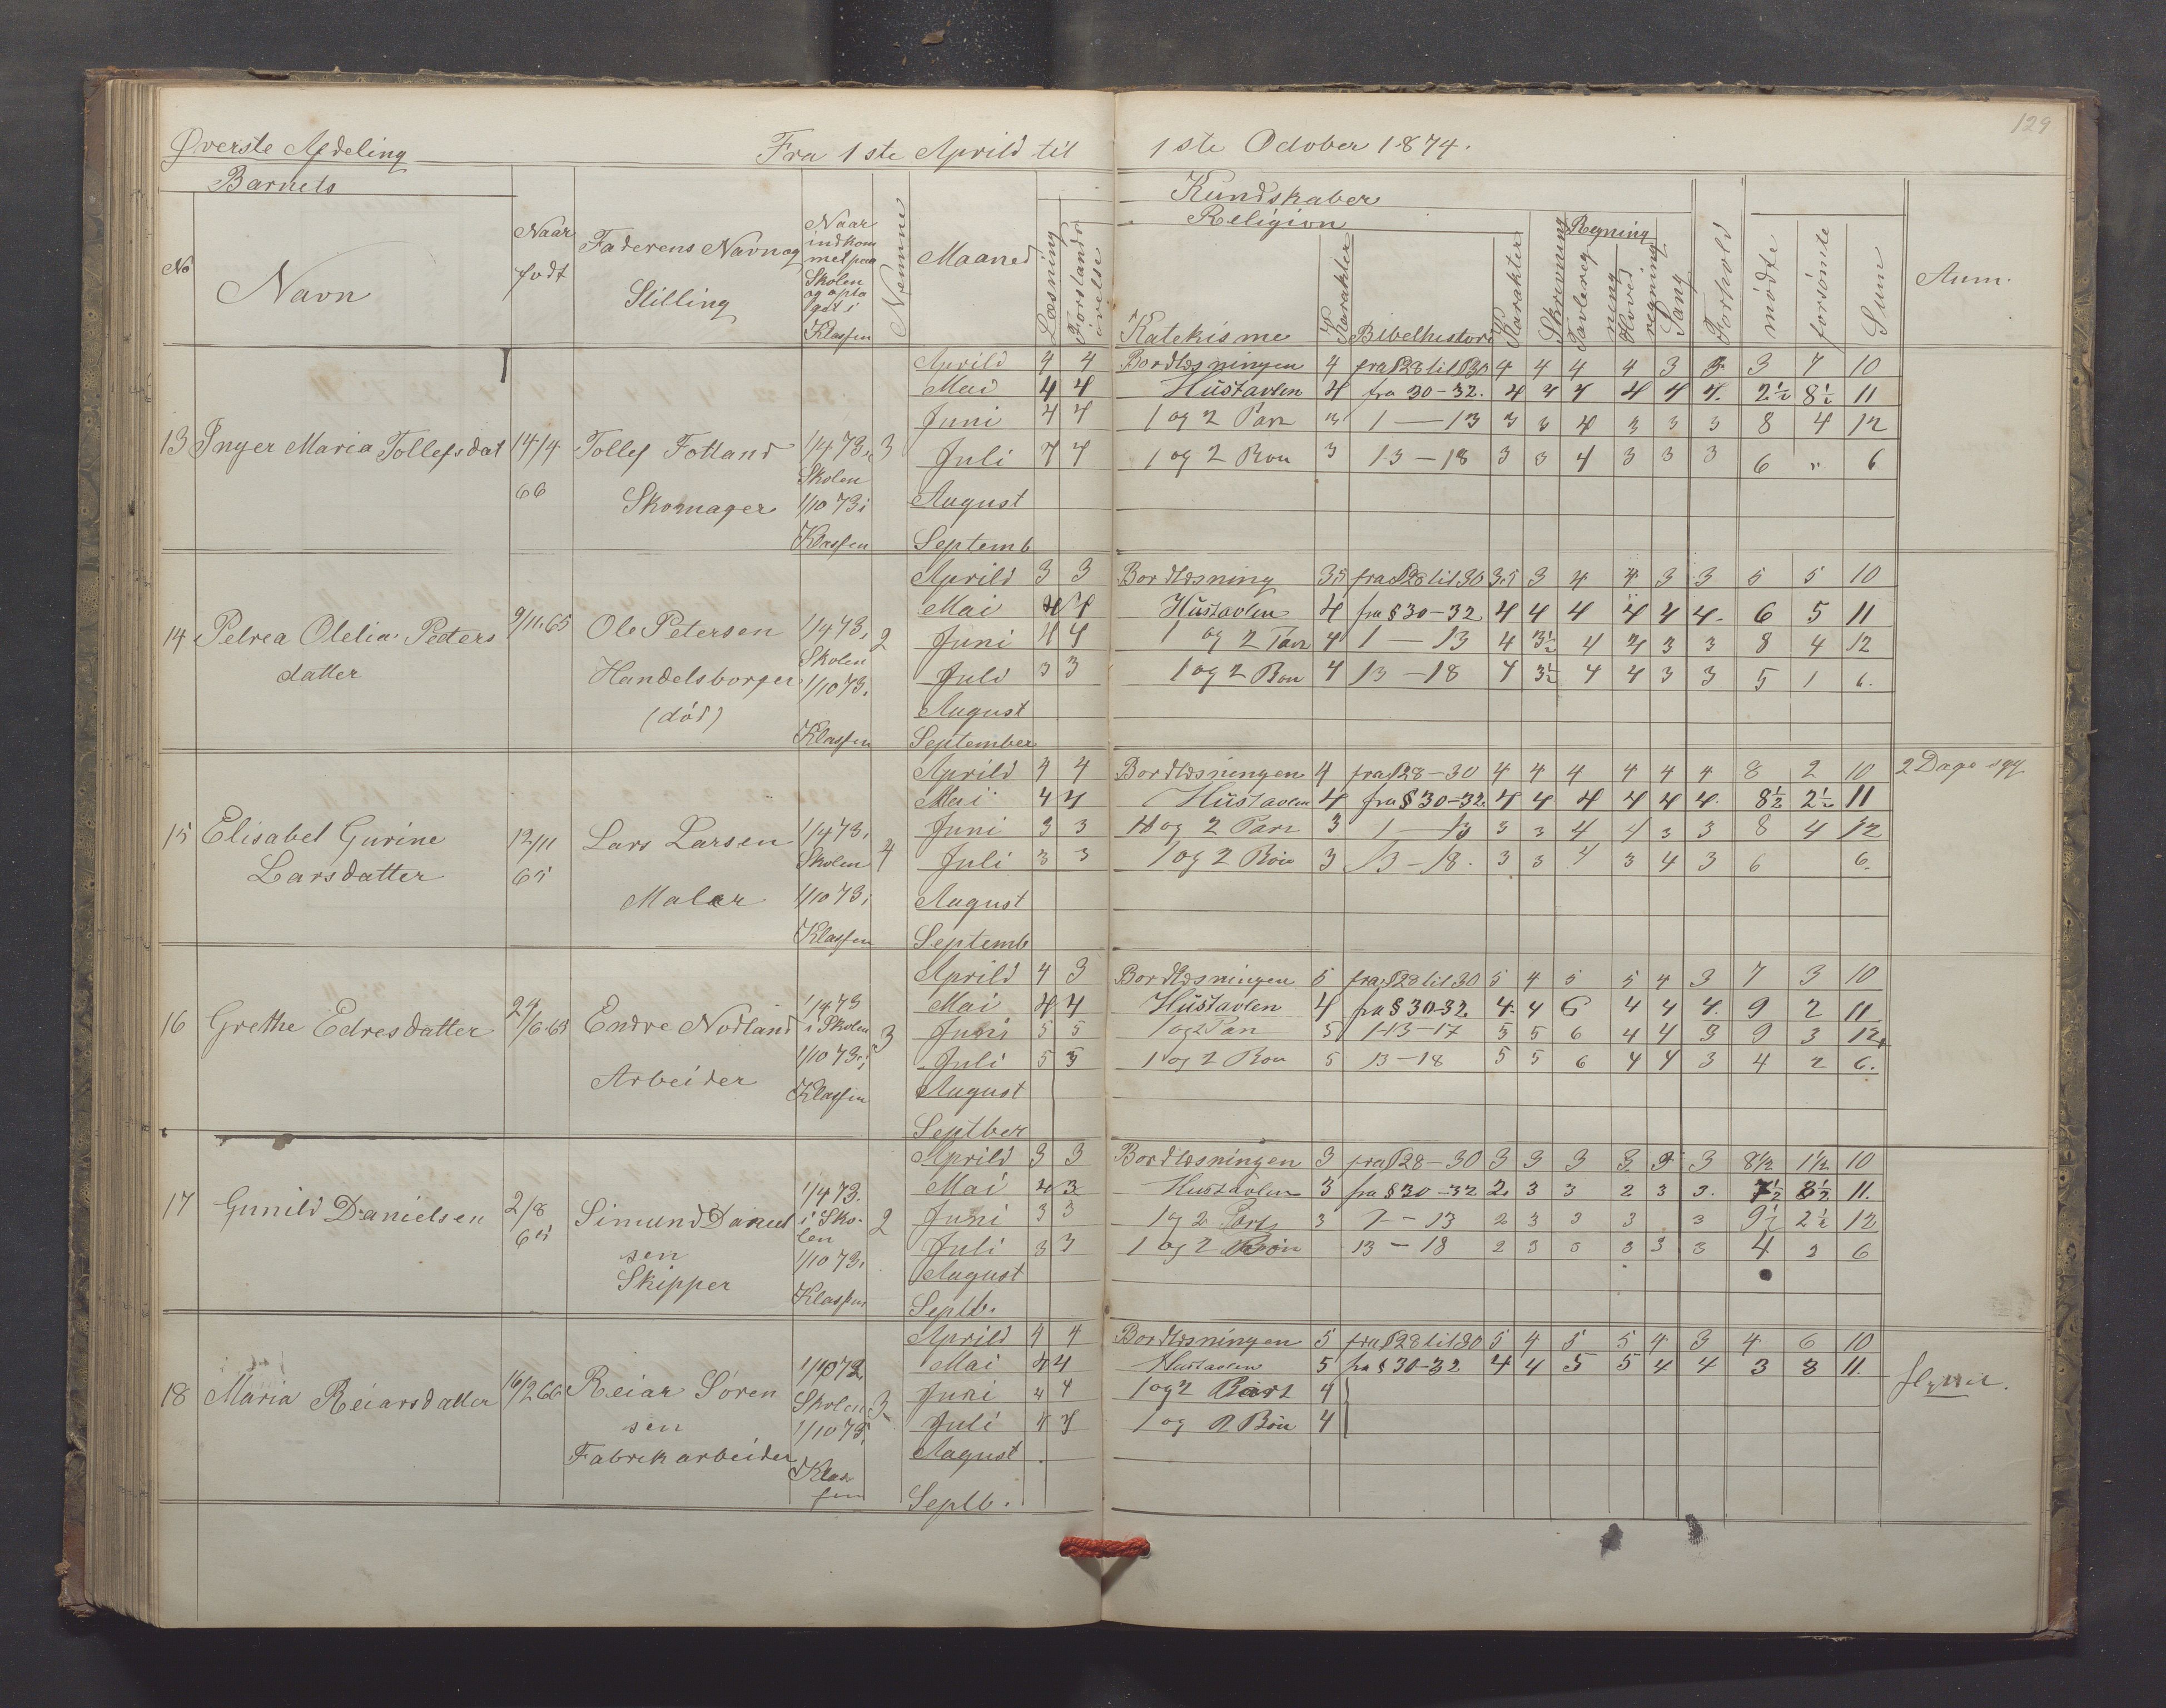 129
Øverste Afdeling Fra 1ste Aprild til 1ste October 1874.
Barnets Kundskaber
Religion Regning
No Navn Naar født Faderens Navn og Stilling Naar indkommet paa Skolen og optaget i Klassen Nemme Maaned Læsning Forstandsøvelse Katekisme Karakter Bibelhistori Karakter Skrivning Tavleregning Hovedregning Sang Forhold mødte forsømte Sum Anm.
13 Inger Maria Tollefsdat 14/4 66 Tollef Fotland Skomager 1/4 73 i Skolen 1/10 73 i Klassen 3
Aprild 4 4 Bordlæsningen 4 fra § 28 til § 30 4 4 4 4 3 3 3 7 10
Mai 4 4 Hustavlen 4 fra 30-32. 4 4 4 4 4 4. 2½ 8½ 11
Juni 4 4 1 og 2 Part 3 1 — 13 3 3 4 3 3 3 8 4 12
Juli 4 4 1 og 2 Bøn 3 13 - 18 3 3 4 3 3 3 6 " 6
August
Septemb
14 Petrea Olelia Peters datter 9/11 65 Ole Petersen Handelsborger (død) 1/4 73 i Skolen 1/10 73 i Klassen 2
Aprild 3 3 Bordlæsning 3,5 fra § 28 til 30 3,5 3 4 4 3 3 5 5 10
Mai 4 4 Hustavlen 4 fra § 30-32 4 4 4 4 4 4. 6 5 11
Juni 4 4 1 og 2 Part 4 1 — 13 4 3½ 4 4 3 3 8 4 12
Juli 3 3 1 og 2 Bøn 4 13 - 18 4 3½ 4 4 3 3 5 1 6.
August
September
15 Elisabet Gurine Larsdatter 12/11 65 Lars Larsen Maler 1/4 73 i Skolen 1/10 73 i Klassen 4
Aprild 4 4 Bordlæsningen 4 fra § 28-30 4 4 4 4 4 4 8 2 10 2 Dage syg
Mai 4 4 Hustavlen 4 fra § 30-32. 4 4 4 4 4 4. 8½ 2½ 11
Juni 3 3 1 og 2 Part 3 1 — 13 3 3 4 4 3 3 8 4 12
Juli 3 3 1 og 2 Bøn 3 13 - 18. 3 3 4 3 4 3 6 6.
August
Septemb
16 Grethe Edresdatter 24/6 63 Endre Nodland Arbeider 1/4 73 i Skolen 1/10 73 i Klassen 3
Aprild 4 3 Bordlæsningen 5 fra § 28 til 30 5 4 5 5 4 3 7 3 10
Mai 4 4 Hustavlen 4 fra § 30-32. 4. 4 5 4 4 4. 9 2 11
Juni 5 5 1 og 2 Part 5 1-13-17 5 5 6 4 4 3 9 3 12
Juli 5 5 1 og 2 Bøn 5 13-18 5 5 6 4 4 3 4 2 6.
August
Septber
17 Gunild Danielsen 2/8 65 Simund Danielsen Skipper 1/4 73. i Skolen 1/10 73 i Klassen 2
Aprild 3 3 Bordlæsningen 3 fra § 28-30 3 3 3 3 3 3 8½ 1½ 10
Mai 4 3 Hustavlen 3 fra § 30-32 2. 3 3 2 3 3. 7½ 8½ 11.
Juni 3 3 1 og 2 Part 3 1 - 13 2 3 3 3 3 9½ 2½ 12
Juli 3 3 1 og 2 Bøn 13 - 18 2 3 3 3 3 3 4 2 6
August
Septb.
18 Maria Reiarsdatter 16/2 66 Reiar Sørensen Fabrikarbeider 1/10 72 Skolen 1/10 73 i Klassen 3
Aprild 4 4 Bordlæsningen 5 fra § 28 til 30 5 4 5 5 4 3 4 6 10
Mai 4 4 Hustavlen 5 fra § 30-32 4 4 5 5 4 4 3 8 11. flyttet.
Juni 4 4 1 og 2 Part 4
Juli 4 4 1 og 2 Bøn 4
August
Septb.